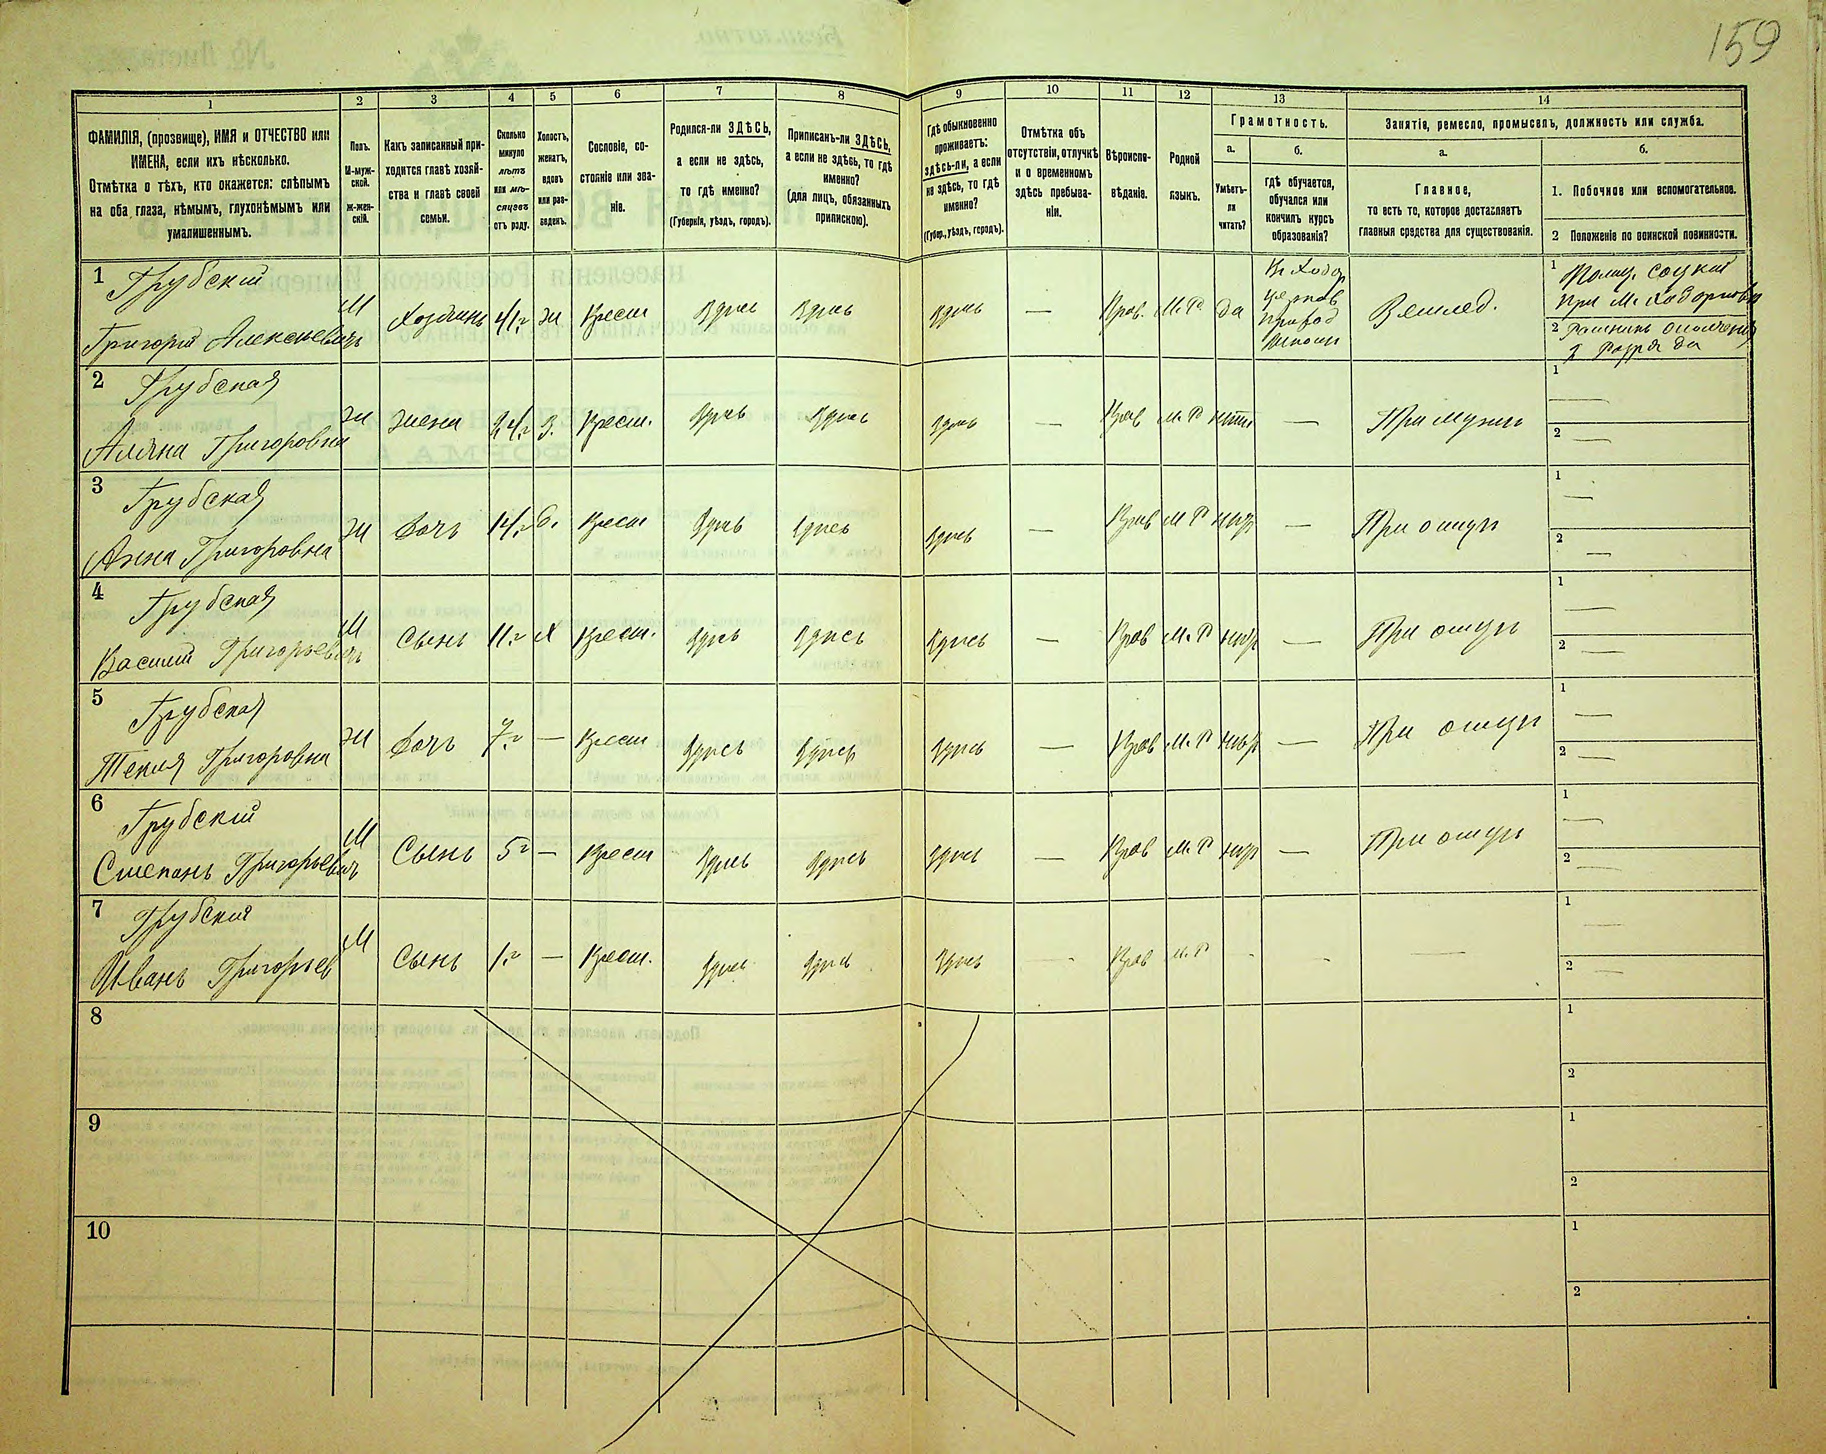 159
1 2 3 4 5 6 7 8 9 10 11 12 13 14
ФАМИЛІЯ, (прозвище), ИМЯ и ОТЧЕСТВО или
ИМЕНА, если ихъ нѣсколько.
Отмѣтка о тѣхъ, кто окажется: слѣпымъ
на оба глаза, нѣмымъ, глухонѣмымъ или
умалишеннымъ.
Полъ.
М-муж-
ской.
ж-жен-
скій.
Какъ записанный при-
ходится главѣ хозяй-
ства и главѣ своей
семьи.
Сколько
минуло
лѣтъ
или мѣ-
сяцевъ
отъ роду.
Холостъ,
женатъ,
вдовъ
или раз-
веденъ.
Сословіе, со-
стояніе или зва-
ніе.
Родился-ли ЗДѢСЬ,
а если не здѣсь,
то гдѣ именно?
(Губернія, уѣздъ, городъ).
Приписанъ-ли ЗДѢСЬ,
а если не здѣсь, то гдѣ
именно?
(для лицъ, обязанныхъ
припискою).
Гдѣ обыкновенно
проживаетъ:
здѣсь-ли, а если
не здѣсь, то гдѣ
именно?
(Губер., уѣздъ, городъ).
Отмѣтка объ
отсутствіи, отлучкѣ
и о временномъ
здѣсь пребыва-
ніи.
Вѣроиспо-
вѣданіе.
Родной
языкъ.
Грамотность.
а.
Умѣетъ-
ли
читать?
б.
гдѣ обучается,
обучался или
кончилъ курсъ
образованія?
Занятіе, ремесло, промыселъ, должность или служба.
а.
Главное,
то есть то, которое доставляетъ
главныя средства для существованія.
б.
1. Побочное или вспомогательное.
2 Положеніе по воинской повинности.
1 Грубскій
Григорій Алексѣевичъ М Хозяинъ 41 г ж Крест здѣсь здѣсь здѣсь — Прав. М. Р. да
школы
Землед.
1 соцкій
при м.
2 Ратникъ ополченія
2 разряда
2 Грубская
Григоровна ж жена з. Крест. здѣсь здѣсь здѣсь — Прав М. Р нѣтъ — При мужѣ
1 —
2 —
3 Грубская
Анна Григоровна ж дочь 14 г Крест здѣсь здѣсь здѣсь — Прав М Р — При отцѣ
1 —
2 —
4 Грубская
Василій Григорьевичъ М Сынъ 11 г Х Крест. здѣсь здѣсь здѣсь — Прав М. Р — При отцѣ
1 —
2 —
5 Грубская
Текля Григоровна ж дочь 7 г — Крест здѣсь здѣсь здѣсь — Прав М. Р — При отцѣ
1 —
2 —
6 Грубскій
Степанъ Григорьевичъ М Сынъ 5 г — Крест здѣсь здѣсь здѣсь — Прав М. Р — При отцѣ
1 —
2 —
7 Грубскій
Иванъ Григорьев М Сынъ 1 г — Крест. здѣсь здѣсь здѣсь — Прав М. Р —
1 —
2 —
8
1
2
9
1
2
10
1
2